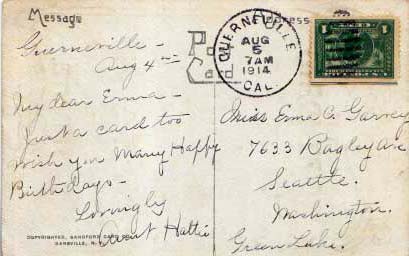 Message
Address
Post
Card
GUERNEVILLE
AUG
5
7AM
1914
CAL.
1
Guerneville -
Aug 4th
My dear Erma -
Just a card too
wish you Many Happy
Birthdays -
Lovingly
Aunt Hattie
Miss Erma C. Garvey
7633 Bagley Ave
Seattle.
Washington.
Green Lake.
COPYRIGHTED, SANDFORD CARD CO.
DANSVILLE, N.